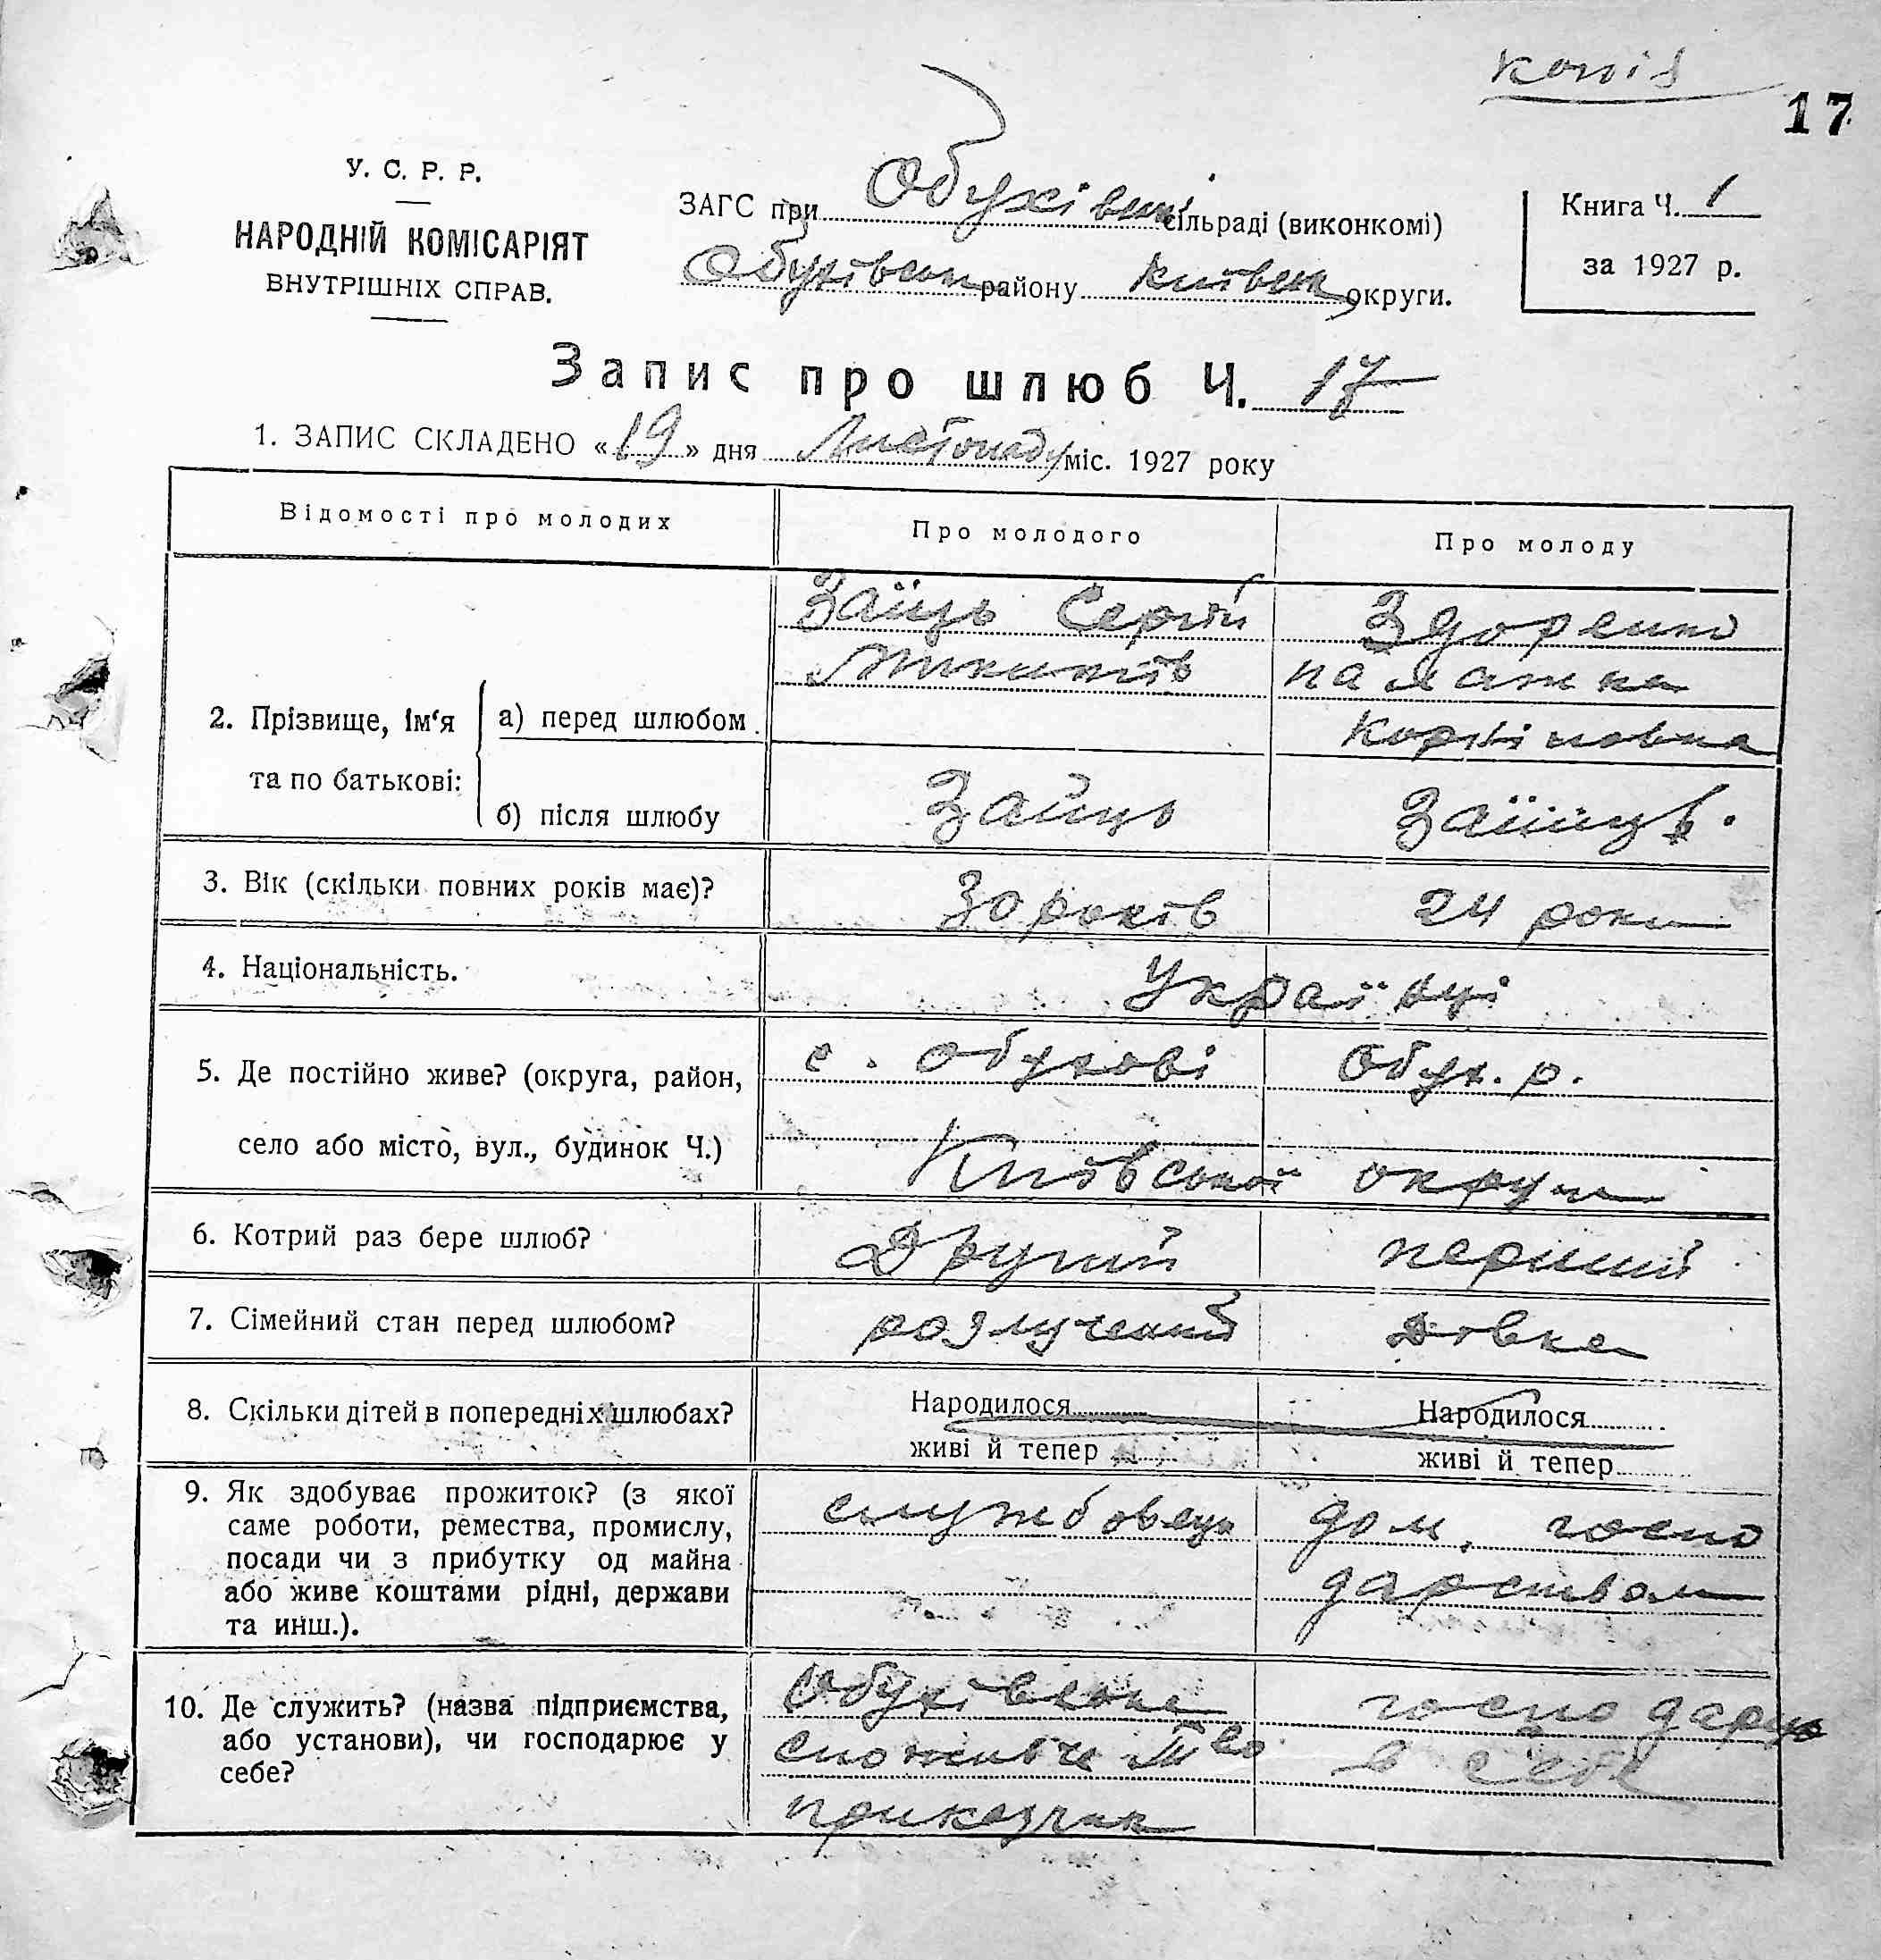 копія
17
У. С. Р. Р.
НАРОДНІЙ КОМІСАРІЯТ
ВНУТРІШНІХ СПРАВ.
ЗАГС при Обухівській сільраді (виконкомі)
Обухівськ району Київськ округи.
Книга Ч. 1
за 1927 р.
Запис про шлюб Ч. 17
1. ЗАПИС СКЛАДЕНО «19» дня Листопаду міс. 1927 року
Відомості про молодих
Про молодого
Про молоду
2. Прізвище, ім‘я
та по батькові:
а) перед шлюбом
Заїць Сергій
Микитів
Здоренко
палажка
б) після шлюбу
Зайць
Заїйць.
3. Вік (скільки повних років має)?
30 років
24 роки
4. Національність.
Українці
5. Де постійно живе? (округа, район,
село або місто, вул., будинок Ч.)
с. Обухові Обух. р.
Київської округи
6. Котрий раз бере шлюб?
Другий
перший
7. Сімейний стан перед шлюбом?
розлучений
Дівка
8. Скільки дітей в попередніх шлюбах?
Народилося
живі й тепер
Народилося
живі й тепер
9. Як здобуває прожиток? (з якої
саме роботи, ремества, промислу,
посади чи з прибутку од майна
або живе коштами рідні, держави
та инш.).
службовець
дом. госпо
дарством
10. Де служить? (назва підприємства,
або установи), чи господарює у
себе?
Обухівське
споживче Т-во
приказчик
господарює
в себе